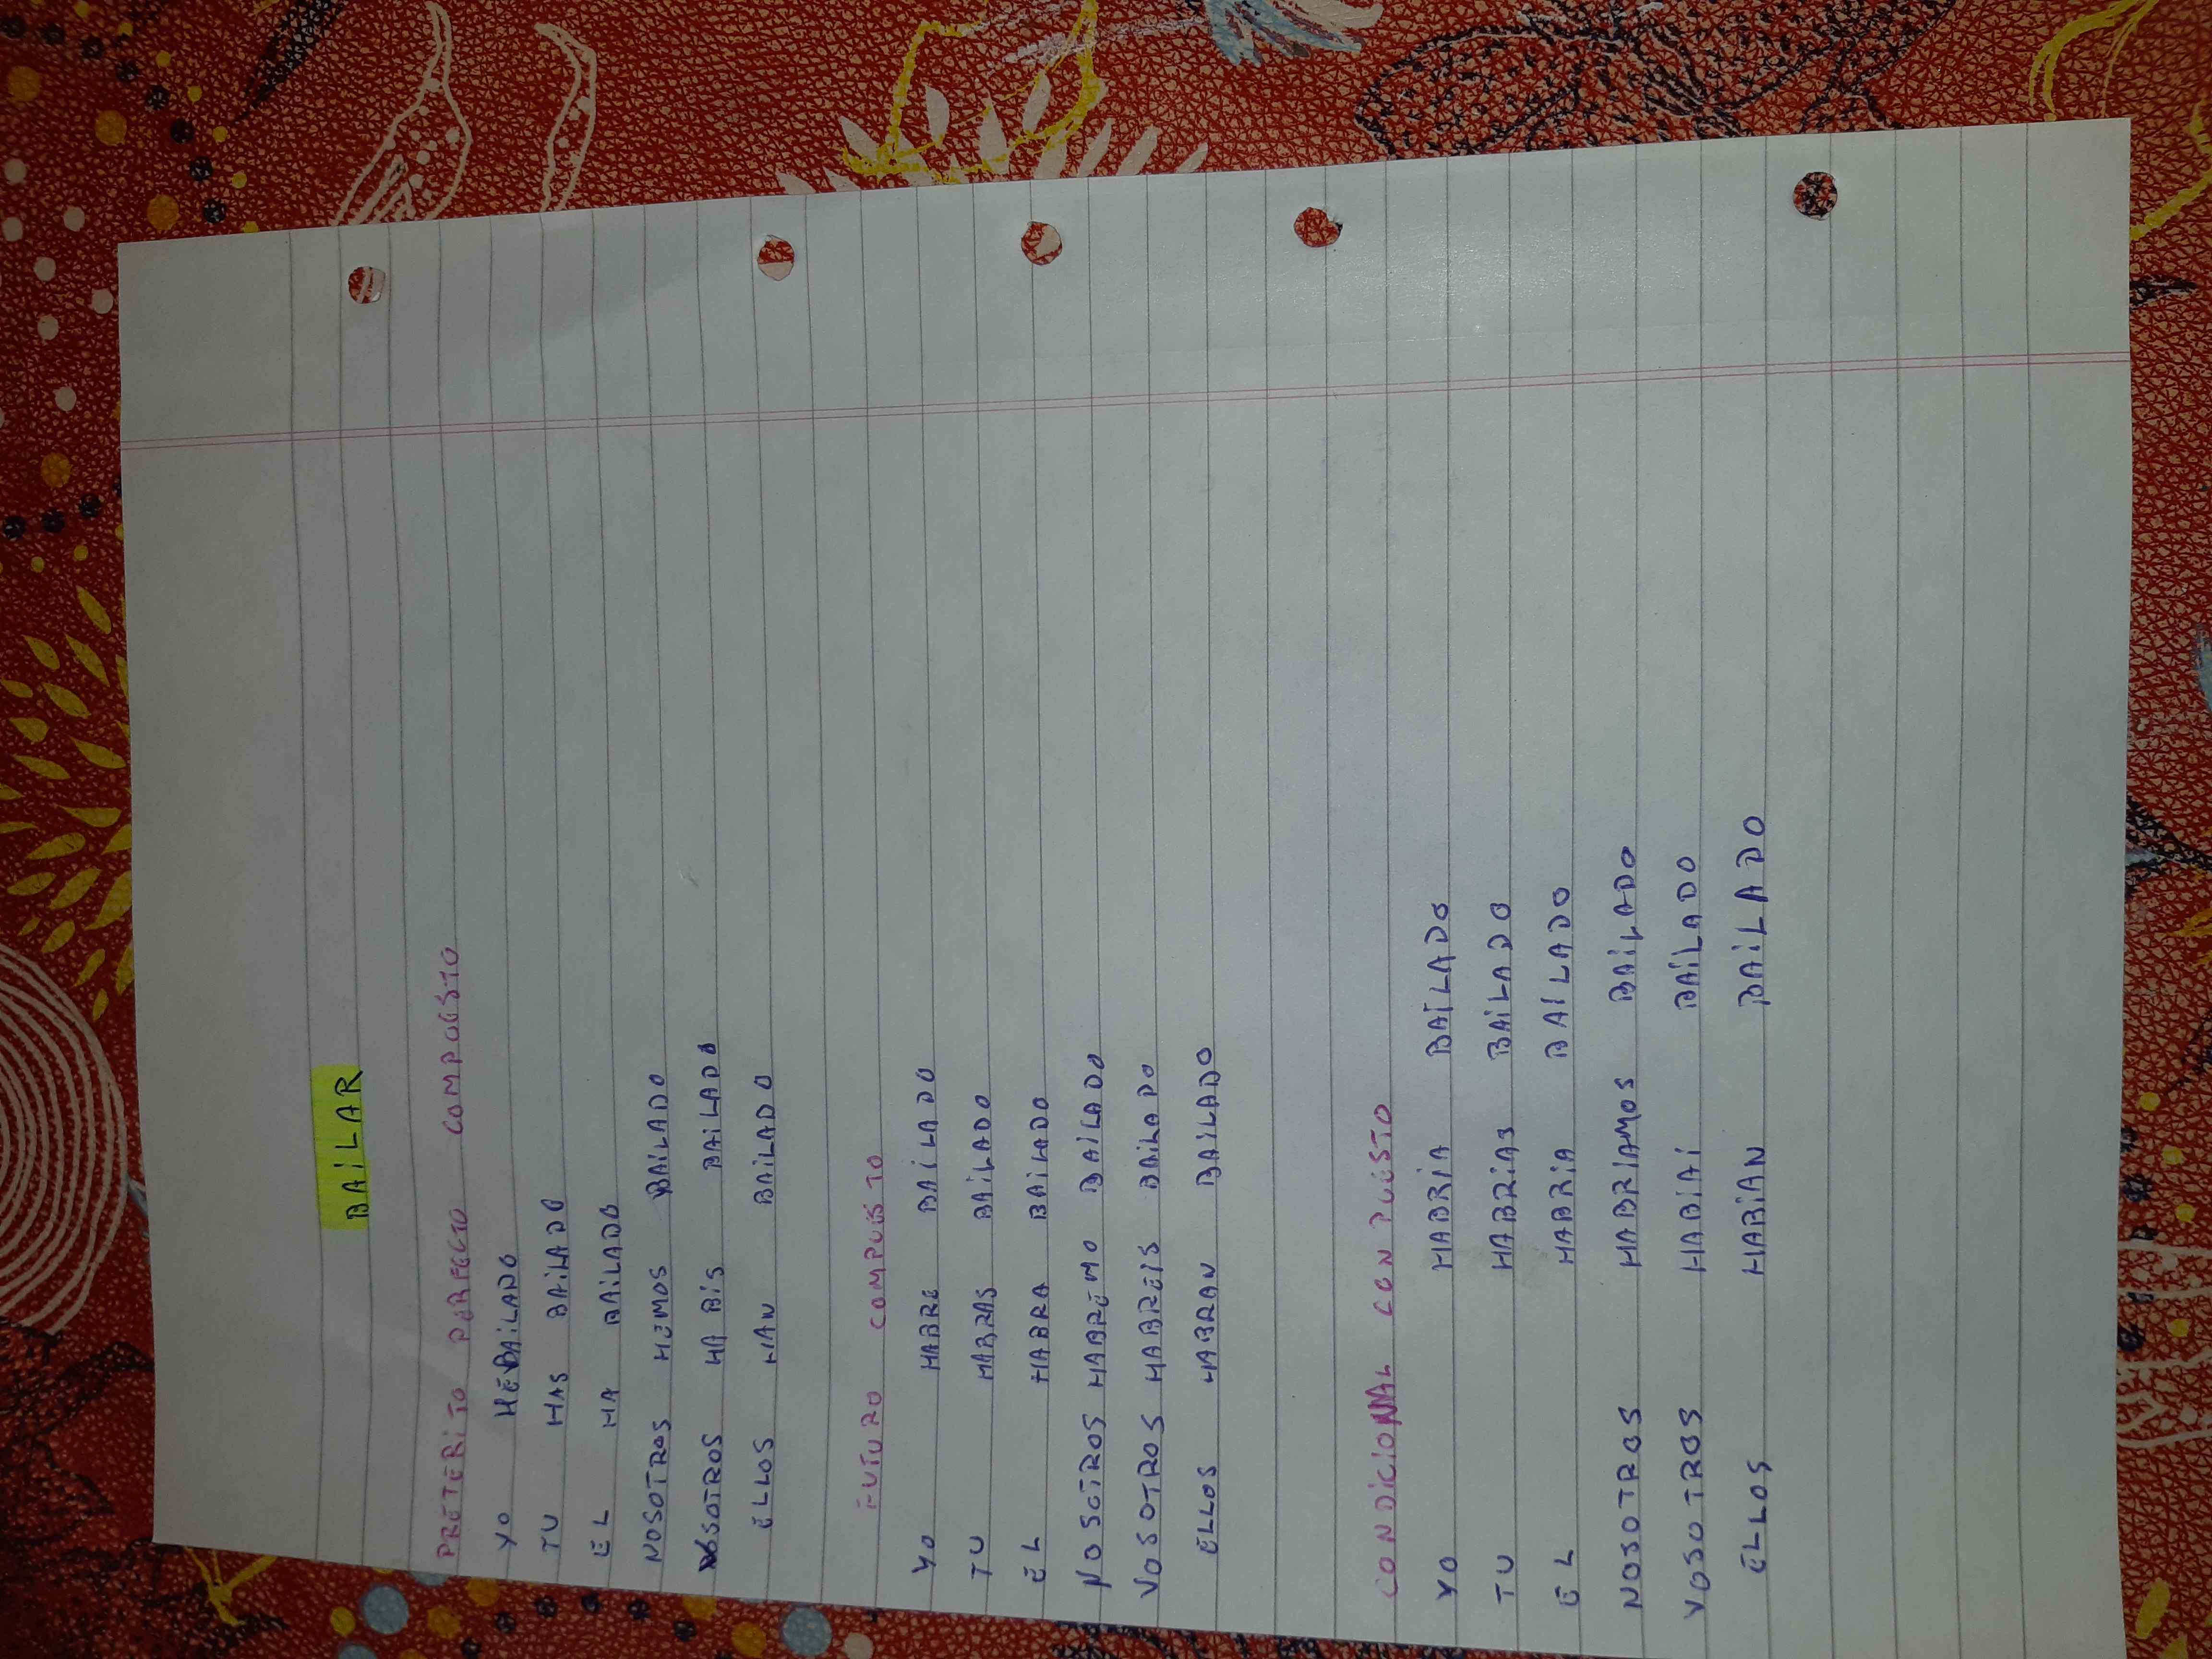 BAILAR
PRETERITO PERFECTO COMPUESTO
YO HE BAILADO
TU HAS BAILADO
EL HA BAILADO
NOSOTROS HEMOS BAILADO
VOSOTROS HABIS BAILADO
ELLOS HAN BAILADO
FUTURO COMPUESTO
YO HABRE BAILADO
TU HABRAS BAILADO
EL HABRA BAILADO
NOSOTROS HABREMO BAILADO
VOSOTROS HABREIS BAILADO
ELLOS HABRAN BAILADO
CONDICIONAL CONPUESTO
YO HABRIA BAILADO
TU HABRIAS BAILADO
EL HABRIA BAILADO
NOSOTROS HABRIAMOS BAILADO
VOSOTROS HABIAI BAILADO
ELLOS HABIAN BAILADO